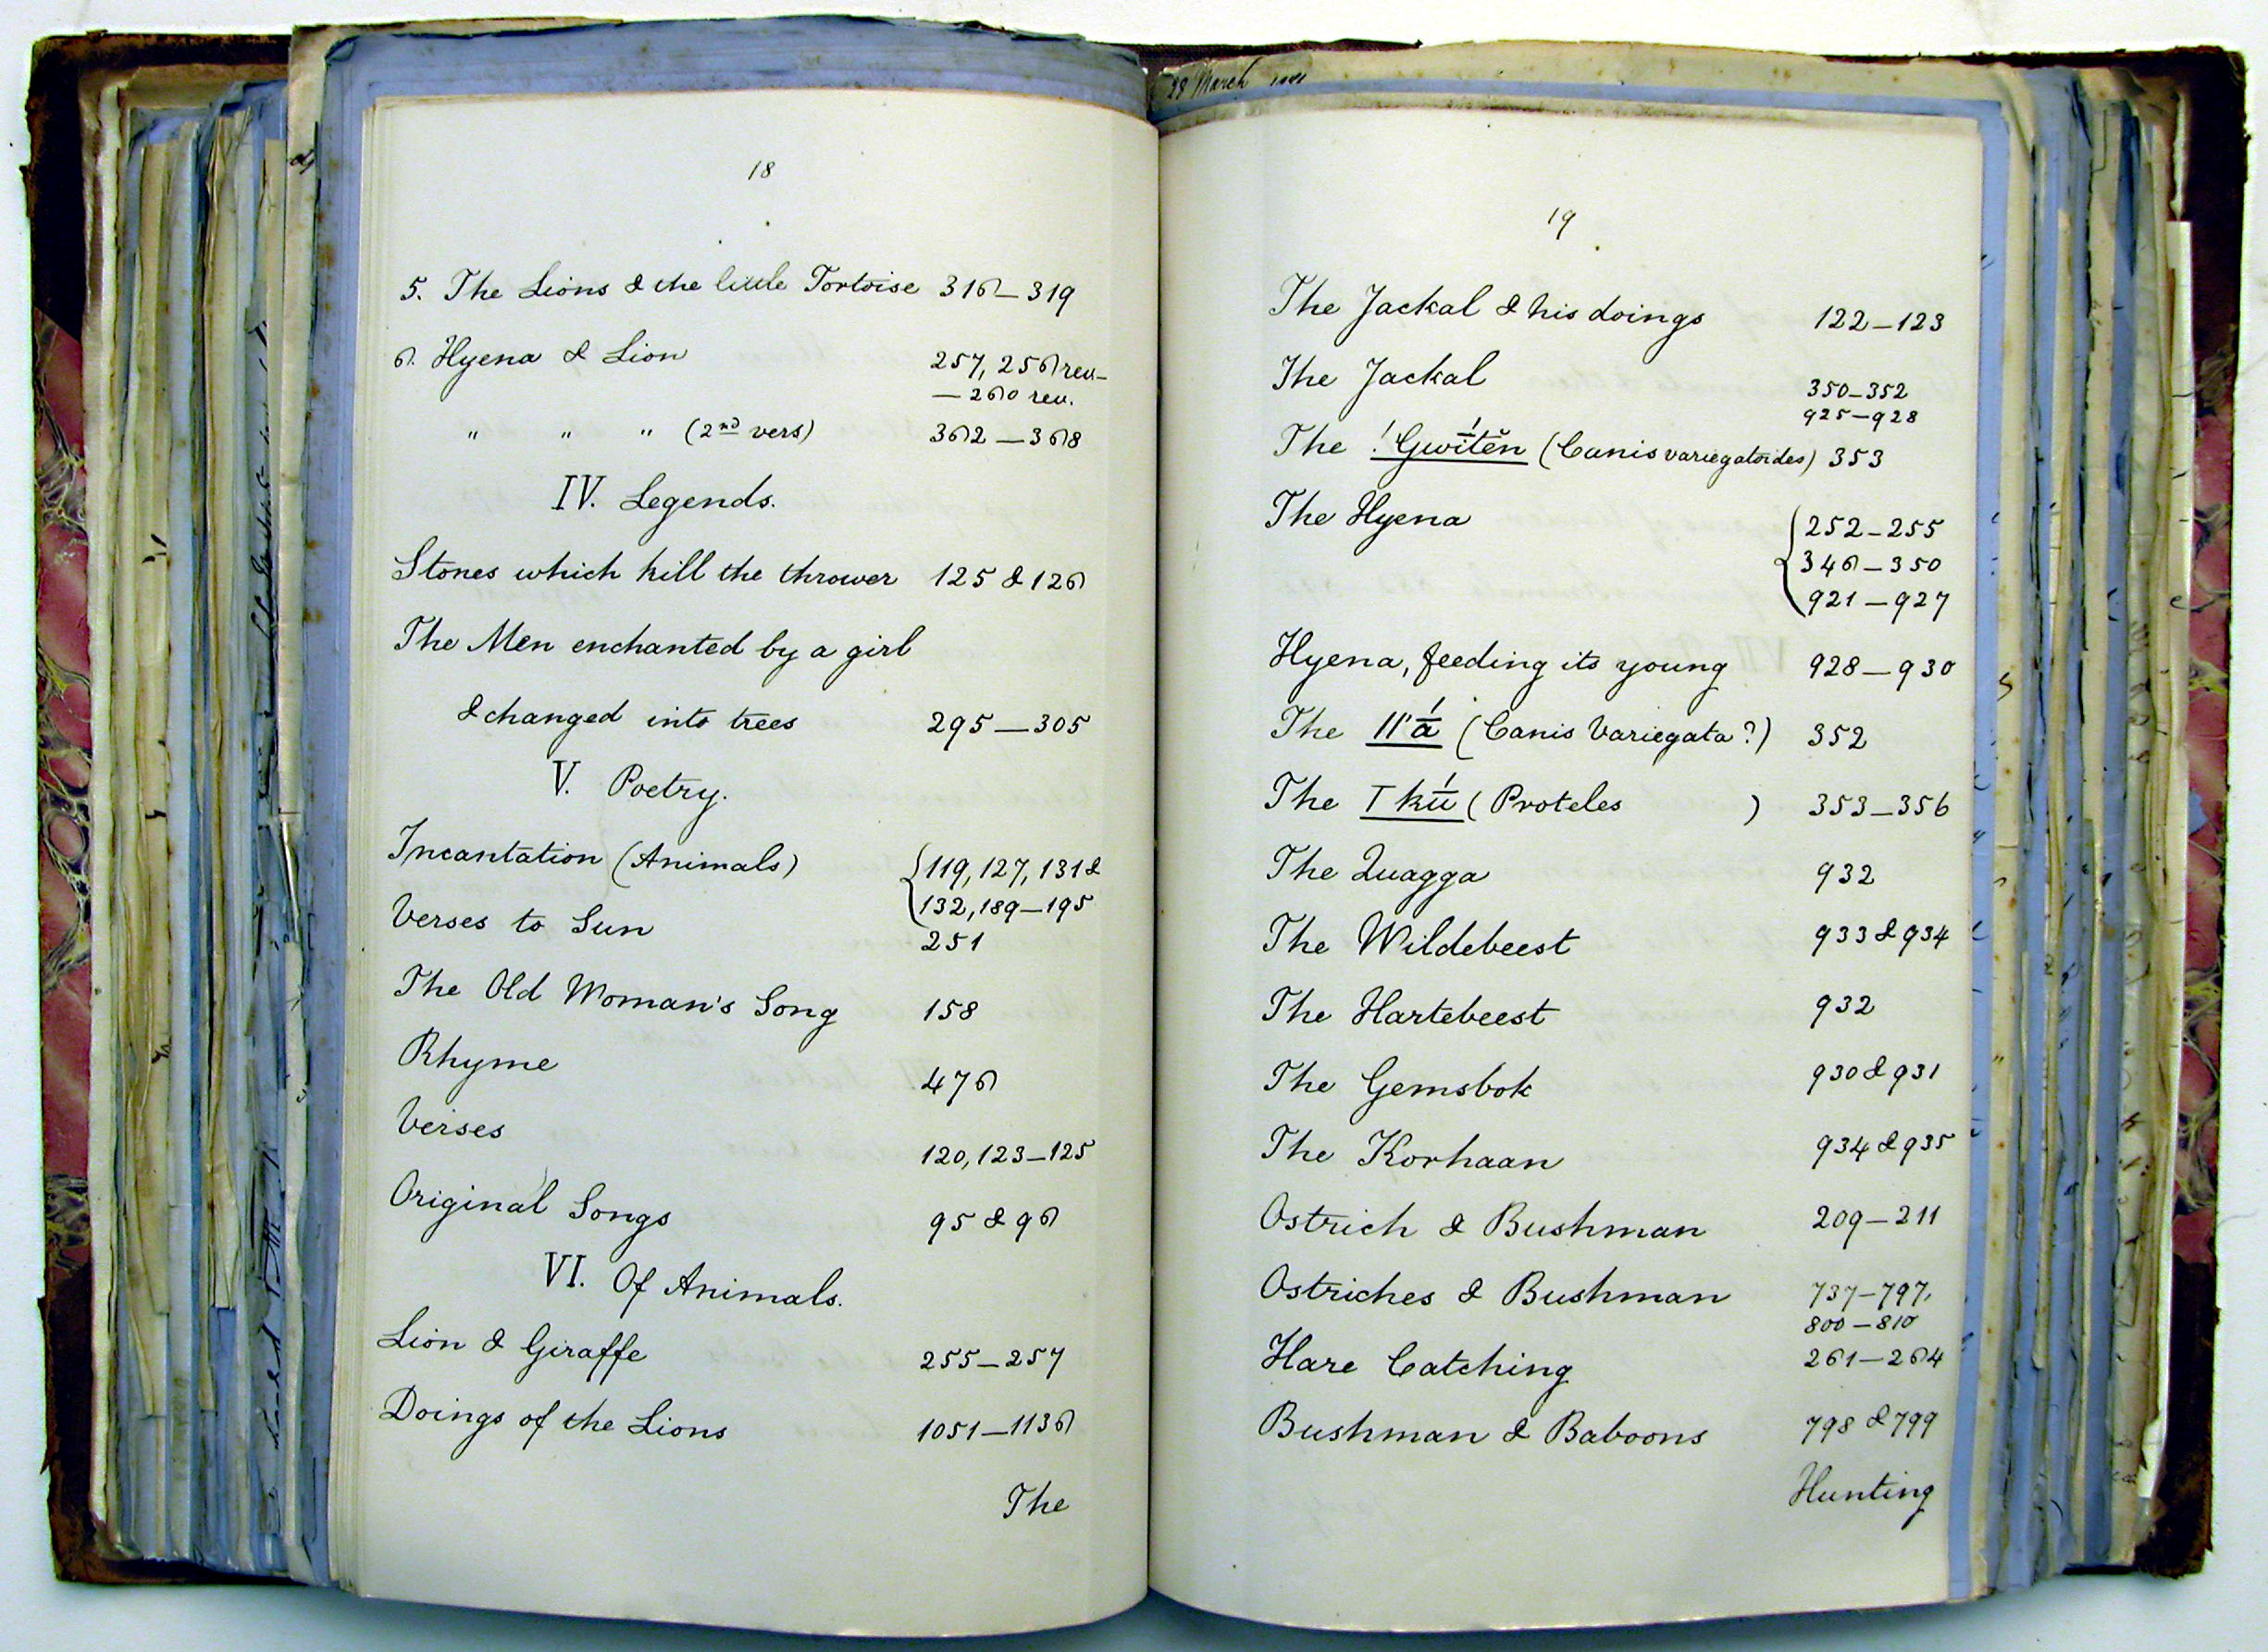 18
5. The Lions & the little Tortoise 316—319
6. Hyena & Lion 257, 256 rev—
—260 rev.
" " " (2nd vers) 362—368
IV. Legends.
Stones which kill the thrower 125 & 126
The Men enchanted by a girl
& changed into trees 295—305
V. Poetry.
Incantation (Animals) {119, 127, 131 &
132, 189—195
Verses to Sun 251
The Old Woman's Song 158
Rhyme 476
Verses 120, 123—125
Original Songs 95 & 96
VI. Of Animals.
Lion & Giraffe 255—257
Doings of the Lions 1051—1136
The
28 March
19
The Jackal & his doings 122—123
The Jackal 350—352
925—928
The !Gwĭtĕn (Canis variegatoides) 353
The Hyena {252—255
346—350
921—927
Hyena, feeding its young 928—930
The ||'ā́ (Canis Variegata?) 352
The ꞮkṺ (Proteles ) 353—356
The Quagga 932
The Wildebeest 933 & 934
The Hartebeest 932
The Gemsbok 930 & 931
The Korhaan 934 & 935
Ostrich & Bushman 209—211
Ostriches & Bushman 737—797,
800—810
Hare Catching 261—264
Bushman & Baboons 798 & 799
Hunting